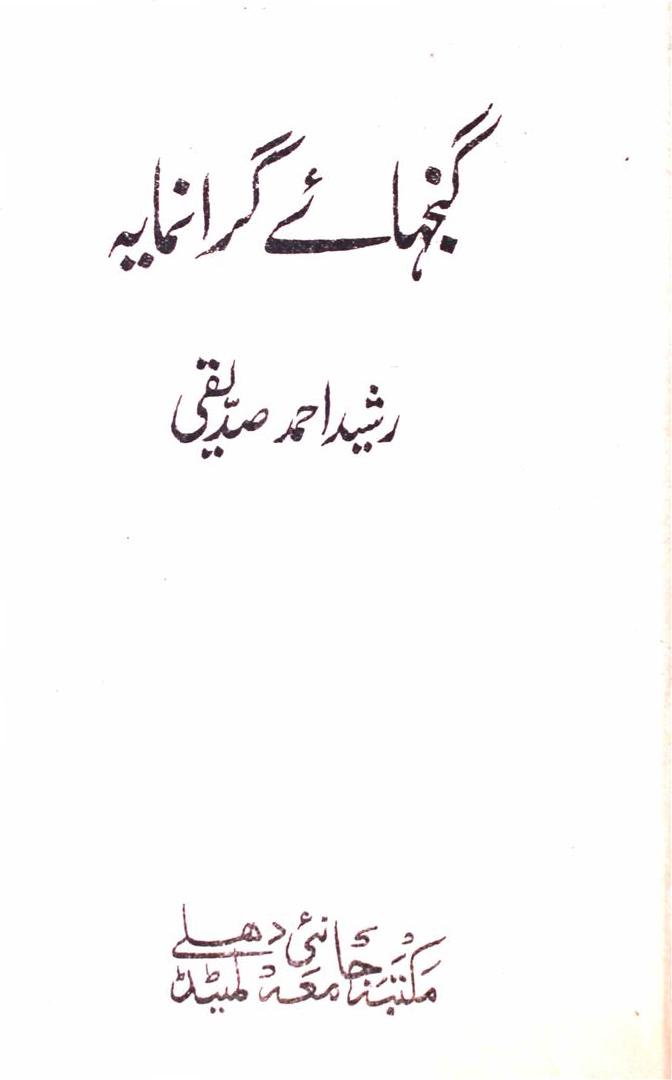 گنجہائے گرانمایہ
رشید احمد صدّیقی
مَکتَبَہ جَامعَہ لمیٹڈ نئی دھلے